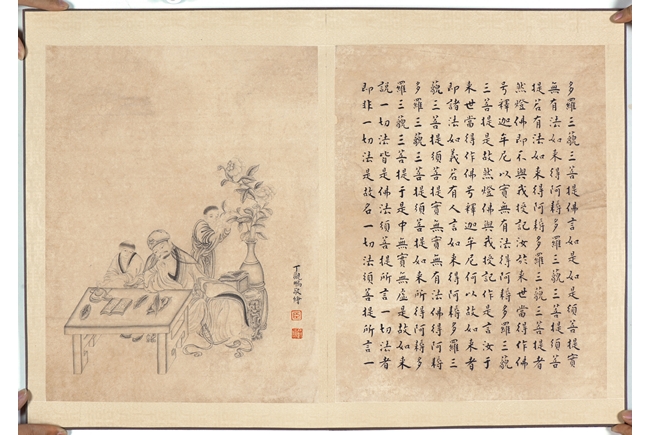 多羅三藐三菩提佛言如是如是須菩提實
無有法如来得阿耨多羅三藐三菩提須菩
提若有法如来得阿耨多羅三藐三菩提者
然燈佛即不與我授記汝於来世當得作佛
号釋迦牟尼以實無有法得阿耨多羅三藐
三菩提是故然燈佛與我授記作是言汝于
来世當得作佛号釋迦牟尼何以故如来者
即諸法如義若有人言如来得阿耨多羅三
藐三菩提須菩提實無有法佛得阿耨
多羅三藐三菩提須菩提如来所得阿耨多
羅三藐三菩提于是中無實無虛是故如来
說一切法皆是佛法須菩提所言一切法者
即非一切法是故名一切法須菩提所言一
丁觀鵬敬繪